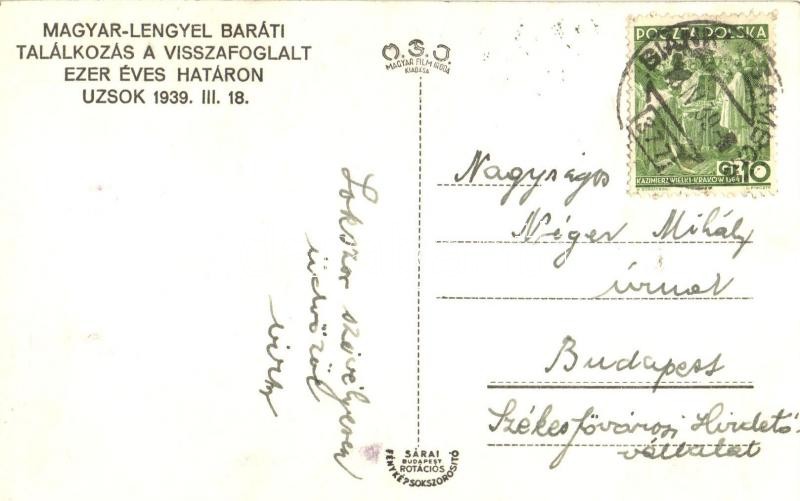 MAGYAR-LENGYEL BARÁTI
TALÁLKOZÁS A VISSZAFOGLALT
EZER ÉVES HATÁRON
UZSOK 1939. III. 18.
MAGYAR FILM IRODA
KIADÁSA
POCZTA POLSKA
GR. 10
KAZIMIERZ WIELKI-KRAKÓW 1364
Sokszor szívélyesen
üdvözöl
Nagyságos
Néger Mihály
úrnak
Budapest
Székesfővárosi Hirdető-
vállalat
SÁRAI
BUDAPEST
ROTÁCIÓS
FÉNYKÉPSOKSZOROSITÓ